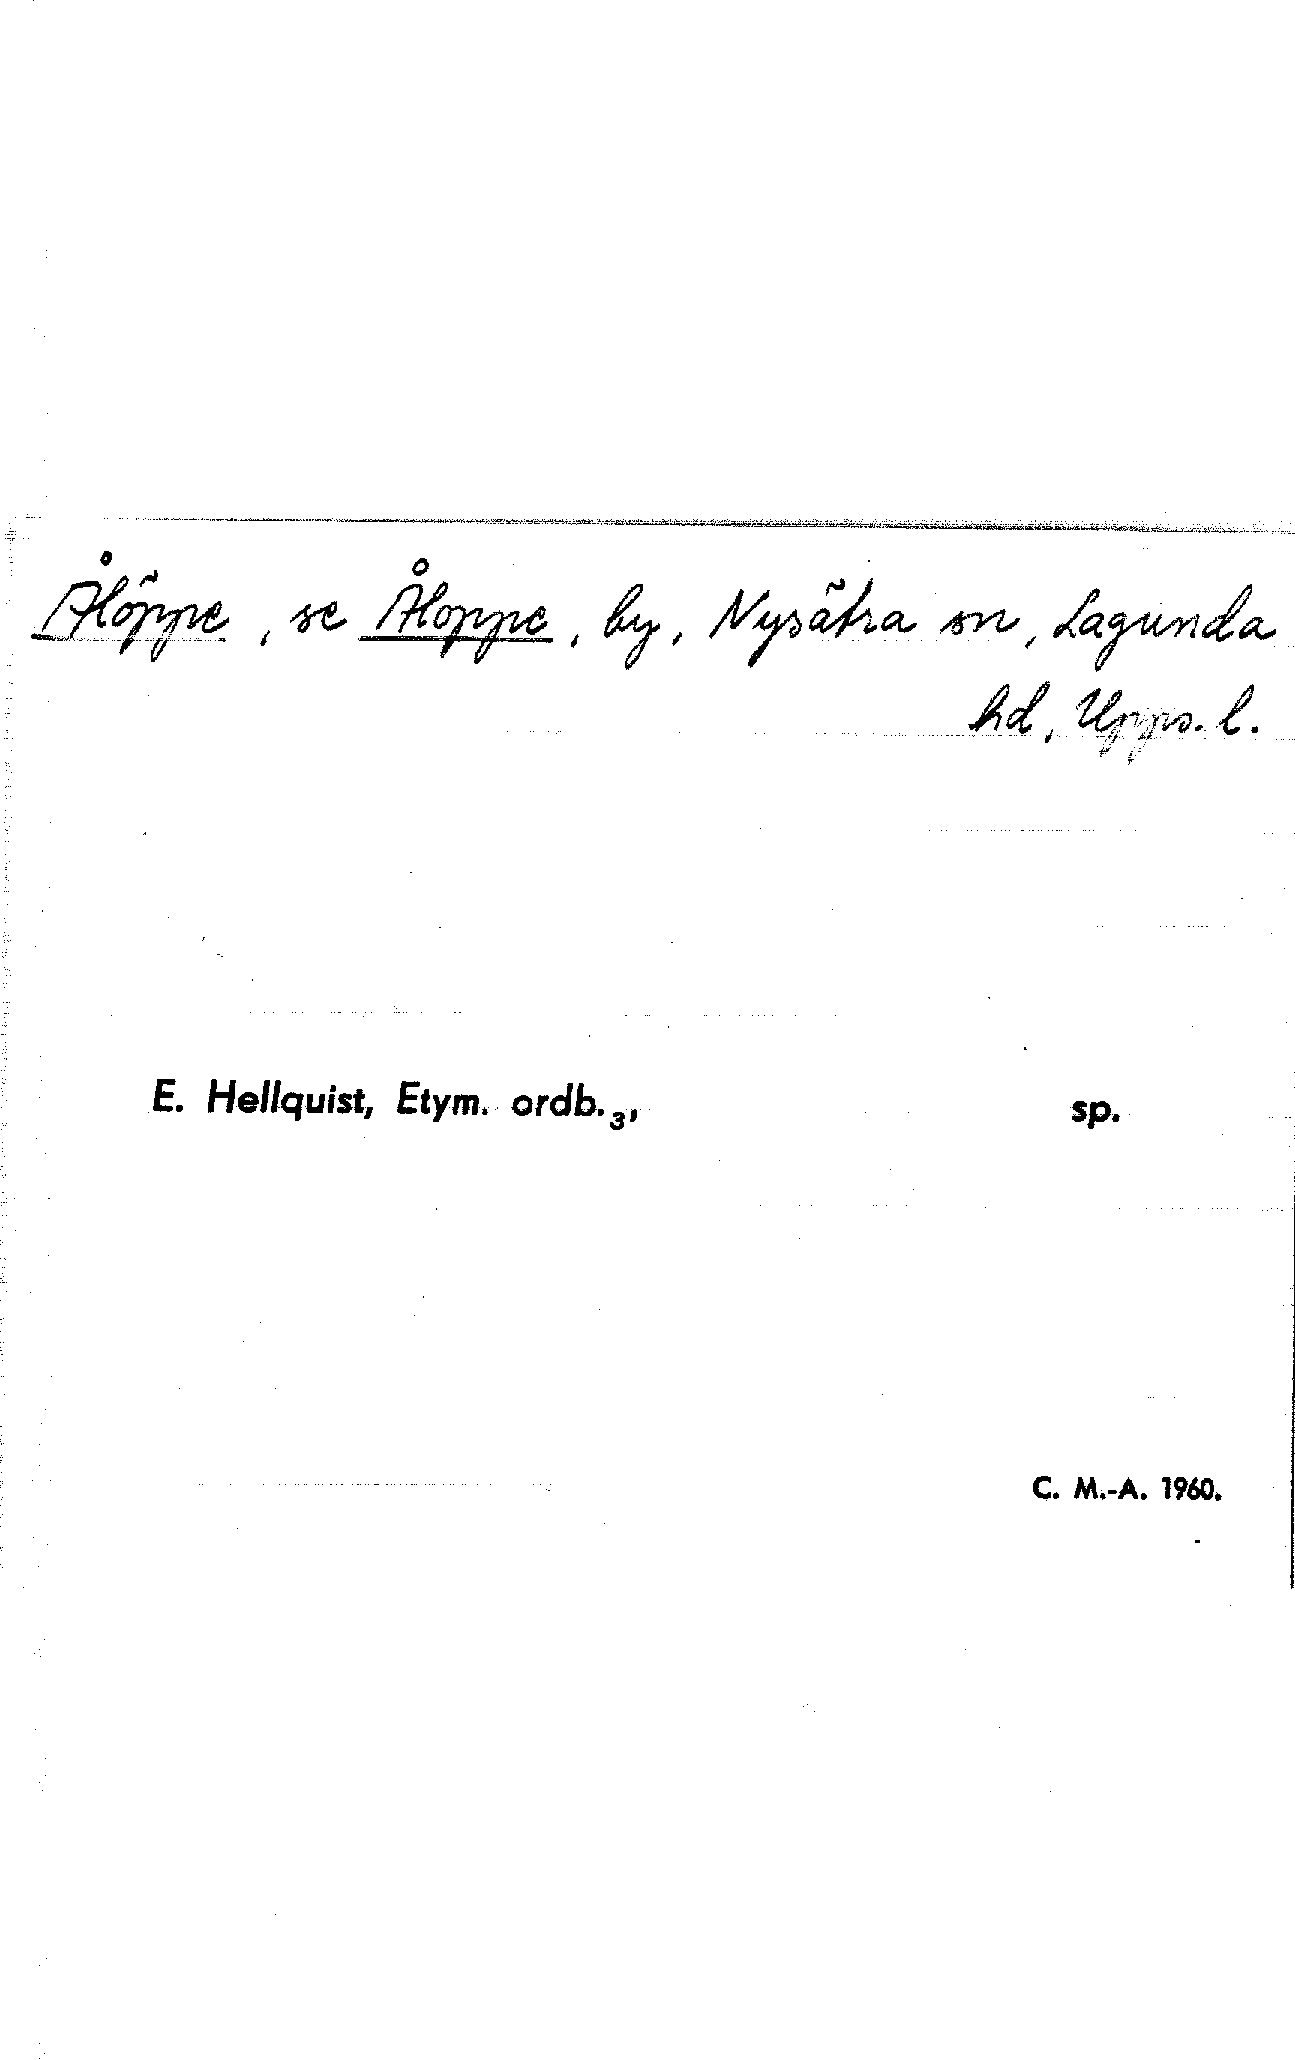 Ålöppe, se Åloppe, by, Nysätra sn, Lagunda
hd, Upps. l.
E. Hellquist, Etym. ordb.₃, sp.
C. M.-A. 1960.